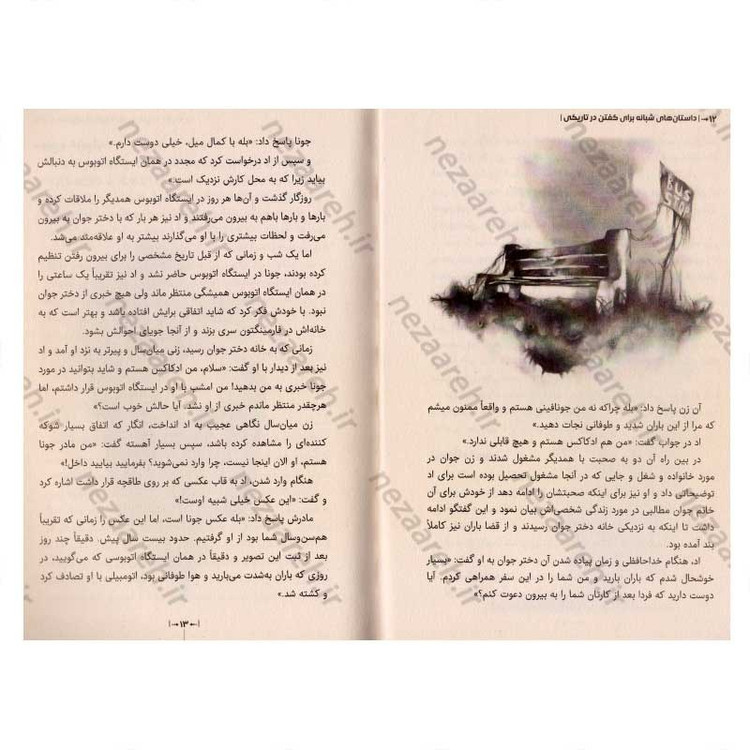 ۱۲ داستان‌های شبانه برای گفتن در تاریکی
BUS
STOP
آن زن پاسخ داد: «بله چراکه نه من جونافینی هستم و واقعاً ممنون میشم
که مرا از این باران شدید و طوفانی نجات دهید.»
اد در جواب گفت: «من هم ادکاکس هستم و هیچ قابلی ندارد.»
در بین راه آن دو به صحبت با همدیگر مشغول شدند و زن جوان در
مورد خانواده و شغل و جایی که در آنجا مشغول تحصیل بوده است برای اد
توضیحاتی داد و او نیز برای اینکه صحبتشان را ادامه دهد از خودش برای آن
خانم جوان مطالبی در مورد زندگی شخصی‌اش بیان نمود و این گفتگو ادامه
داشت تا اینکه به نزدیکی خانه دختر جوان رسیدند و از قضا باران نیز کاملاً
بند آمده بود.
اد، هنگام خداحافظی و زمان پیاده شدن آن دختر جوان به او گفت: «بسیار
خوشحال شدم که باران بارید و من شما را در این سفر همراهی کردم. آیا
دوست دارید که فردا بعد از کارتان شما را به بیرون دعوت کنم؟»
جونا پاسخ داد: «بله با کمال میل، خیلی دوست دارم.»
و سپس از اد درخواست کرد که مجدد در همان ایستگاه اتوبوس به دنبالش
بیاید زیرا که به محل کارش نزدیک است.»
روزگار گذشت و آن‌ها هر روز در ایستگاه اتوبوس همدیگر را ملاقات کرده و
بارها و بارها باهم به بیرون می‌رفتند و اد نیز هر بار که با دختر جوان به بیرون
می‌رفت و لحظات بیشتری را با او می‌گذارند بیشتر به او علاقه‌مند می‌شد.
اما یک شب و زمانی که از قبل تاریخ مشخصی را برای بیرون رفتن تنظیم
کرده بودند، جونا در ایستگاه اتوبوس حاضر نشد و اد نیز تقریباً یک ساعتی را
در همان ایستگاه اتوبوس همیشگی منتظر ماند ولی هیچ خبری از دختر جوان
نبود. با خودش فکر کرد که شاید اتفاقی برایش افتاده باشد و بهتر است که به
خانه‌اش در فارمینگتون سری بزند و از آنجا جویای احوالش بشود.
زمانی که به خانه دختر جوان رسید، زنی میان‌سال و پیرتر به نزد او آمد و اد
نیز بعد از دیدار با او گفت: «سلام، من ادکاکس هستم و شاید بتوانید در مورد
جونا خبری به من بدهید! من امشب با او در ایستگاه اتوبوس قرار داشتم، اما
هرچقدر منتظر ماندم خبری از او نشد. آیا حالش خوب است؟»
زن میان‌سال نگاهی عجیب به اد انداخت، انگار که اتفاق بسیار شوکه
کننده‌ای را مشاهده کرده باشد، سپس بسیار آهسته گفت: «من مادر جونا
هستم، او الان اینجا نیست، چرا وارد نمی‌شوید؟ بفرمایید بیایید داخل!»
هنگام وارد شدن، اد به قاب عکسی که بر روی طاقچه قرار داشت اشاره کرد
و گفت: «این عکس خیلی شبیه اوست!»
مادرش پاسخ داد: «بله عکس جونا است، اما این عکس را زمانی که تقریباً
هم‌سن‌وسال شما بود از او گرفتیم. حدود بیست سال پیش. دقیقاً چند روز
بعد از ثبت این تصویر و دقیقاً در همان ایستگاه اتوبوسی که می‌گویید، در
روزی که باران به‌شدت می‌بارید و هوا طوفانی بود، اتومبیلی با او تصادف کرد
و کشته شد.»
۱۳
nezaareh.ir